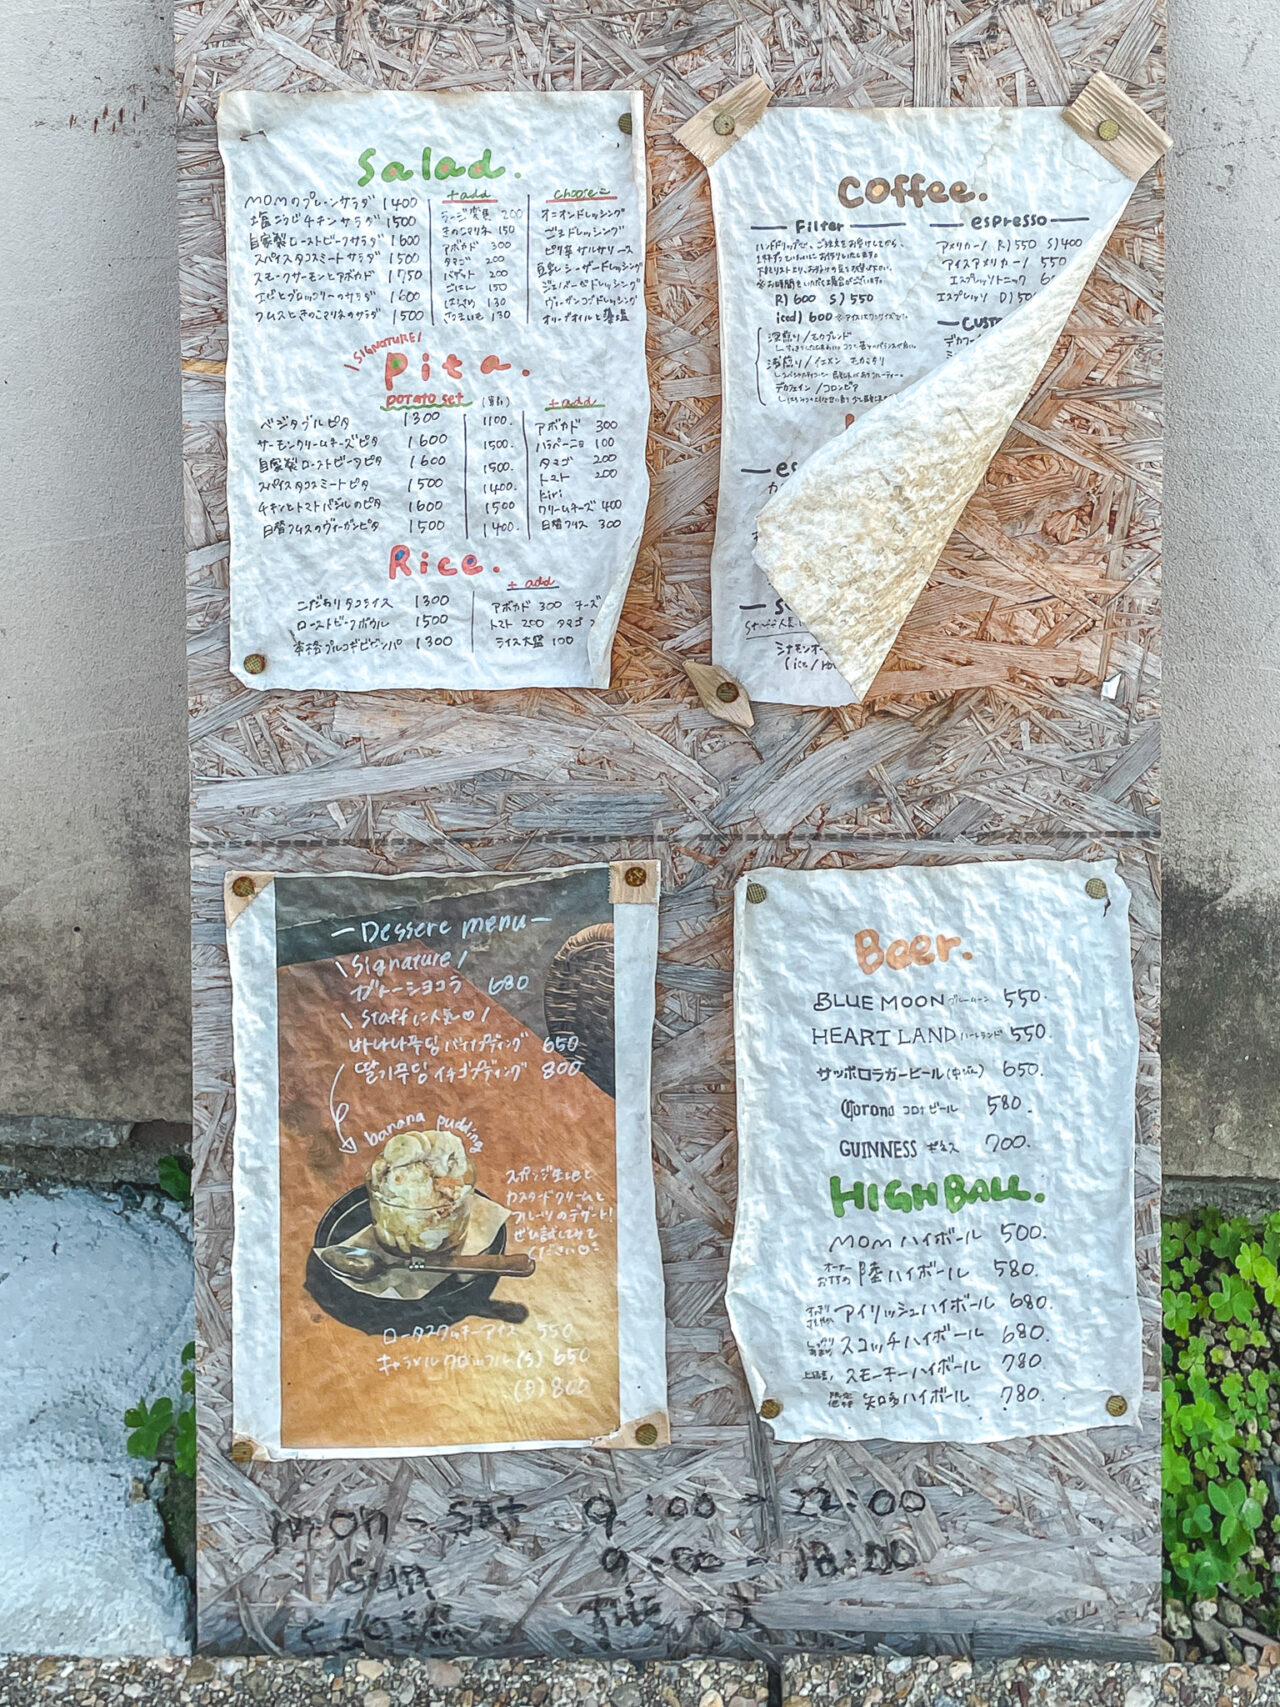 Salad.
MOMのプレーンサラダ 1400
塩こうじチキンサラダ 1500
自家製ローストビーフサラダ 1600
スパイスタコスミートサラダ 1500
スモークサーモンとアボカド 1750
エビとブロッコリーのサラダ 1600
フムスときのこマリネのサラダ 1500
+add
ラージ変更 200
きのこマリネ 150
アボカド 300
タマゴ 200
バゲット 200
ごはん 150
はるさめ 130
さつまいも 130
choose
オニオンドレッシング
ごまドレッシング
ピリ辛サルサソース
豆乳シーザードレッシング
ジェノベーゼドレッシング
ヴィーガンココドレッシング
オリーブオイルと藻塩
\SIGNATURE/
Pita.
POTATO set
+add
ベジタブルピタ 1300 1100.
サーモンクリームチーズピタ 1600 1500.
自家製ローストビーフピタ 1600 1500.
スパイスタコスミートピタ 1500 1400.
チキンとトマトバジルのピタ 1600 1500
日替フムスのヴィーガンピタ 1500 1400.
アボカド 300
ハラペーニョ 100
タマゴ 200
トマト 200
kiri
クリームチーズ 400
日替フムス 300
Rice.
+ add
こだわりタコライス 1300
ローストビーフボウル 1500
本格プルコギビビンバ 1300
アボカド 300 チーズ
トマト 200 タマゴ
ライス大盛 100
Coffee.
Filter
ハンドドリップで、ご注文をお受けしてから、
1杯ずつていねいにお作りいたします。
下記リストより、お好みの豆をお選び下さい。
※お時間をいただく場合がございます。
R) 600 S) 550
iced) 600 ※アイスはワンサイズです。
深煎り/モカブレンド
浅煎り/イエメン モカミタリ
デカフェイン/コロンビア
espresso
アメリカーノ R) 550 S) 400
アイスアメリカーノ 550
エスプレッソトニック
エスプレッソ D) 50
シナモンオー
(ice/Ho
- Dessert menu -
\ Signature /
ガトーショコラ 680
\ Staffに人気♡ /
바나나푸딩 バナナプディング 650
딸기푸딩 イチゴプディング 800
banana pudding
スポンジ生地と
カスタードクリームと
フルーツのデザート!
ぜひ試してみて
ください♡
ロータスクッキーアイス 550
キャラメルクロッフル (S) 650
800
Beer.
BLUE MOON ブルームーン 550.
HEART LAND ハートランド 550.
サッポロラガービール(中びん) 650.
Corona コロナビール 580.
GUINNESS ギネス 700.
HIGH BALL.
MOM ハイボール 500.
オーナーおすすめ 陸ハイボール 580.
アイリッシュハイボール 680.
スコッチハイボール 680.
スモーキーハイボール 780
知多ハイボール 780.
mon - sat 9:00 - 22:00
Sun 9:00 - 18:00